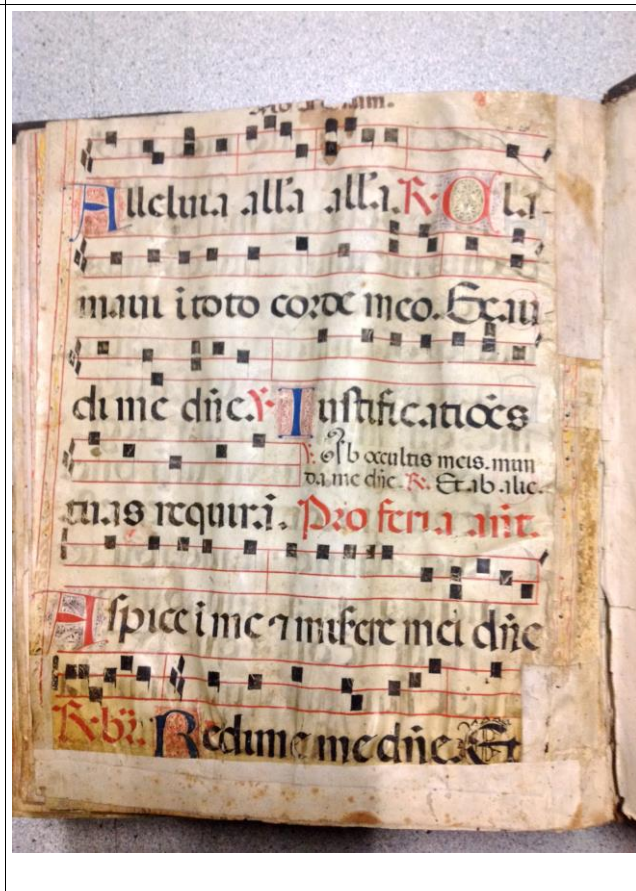 Alleluia all'a all'a. R. Cla-
maui ĩ toto corde meo. Exau
di me dñe. V. Iustificatiões
V. Ab occultis meis. mun
da me dñe. R. Et ab alie.
tuas requirã. Pro feria añt.
Aspice ĩ me ⁊ miserere mei dñe
R. br̃. Redime me dñe. Et